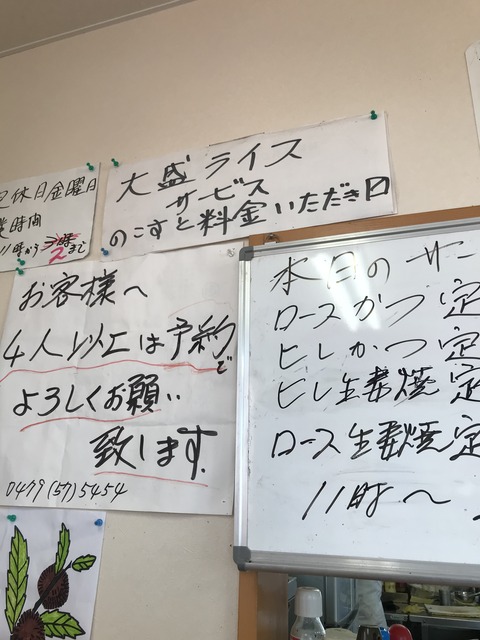 定休日金曜日
業時間
11時から 2時まで
大盛ライス
サービス
のこすと料金いただき〼
お客様へ
4人以上は予約で
よろしくお願い
致します.
0479(57)5454
本日のサー
ロースかつ定
ヒレかつ定
ヒレ生姜焼定
ロース生姜焼定
11時〜